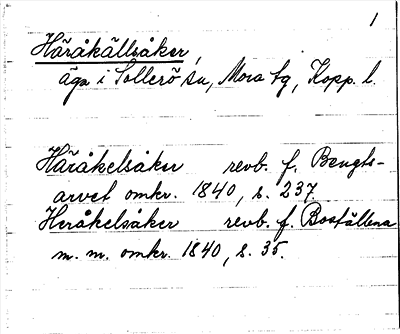 1
Häråkällsåker,
äga i Sollerö sn, Mora tg, Kopp. l.
Häråkelsåker revb. f. Bengts-
arvet omkr. 1840, s. 237
Heråkelsåker revb. f. Boställena
m. m. omkr. 1840, s. 35.